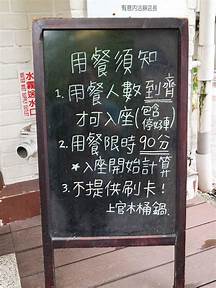 有意內洽詢店長
水霧送水口
用餐須知
1. 用餐人數到齊
才可入座(包含停好車)
2. 用餐限時90分
*入座開始計算
3. 不提供刷卡!
上官木桶鍋.